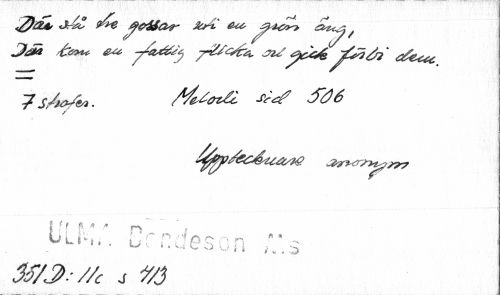 Där stå tre gossar uti en grön äng,
Där kom en fattig flicka och gick förbi dem.
=
7 strofer. Melodi sid 506
Upptecknare anonym
ULMA Bondeson Ms
351 D: 11c s 413